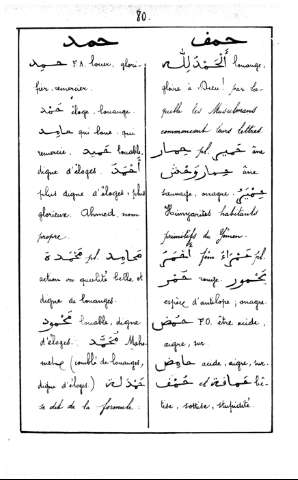 80.
حمد
حمد F.A. louer, glori-
fier, remercier.
حَمْد éloge, louange.
حامِد qui loue, qui
remercie. حَمِيد louable,
digne d'éloges. أَحْمَد
plus digne d'éloges, plus
glorieux. Ahmed, nom
propre.
مَحْمَدة pl. مَحامِد
action ou qualité belle, et
digne de louanges.
مَحْمُود louable, digne
d'éloges. مُحَمَّد Maho-
met (comblé de louanges,
digne d'éloges) حَمْدَلة
se dit de la formule
حمق
أَلْحَمْدُ لِلّٰه louange,
gloire à Dieu! par la-
quelle les Musulmans
commencent leurs lettres.
حِمار pl. حَمِير âne
حِمار وَحْش âne
sauvage, onagre. حِمْيَر
Himyarites habitants
primitifs du Yémen.
أَحْمَر fém. حَمْراء pl.
حُمْر rouge. يَحْمُور
espèce d'antilope; onagre.
حَمُضَ F.O. être acide,
aigre, sur.
حامِض acide, aigre, sur.
حُمْق et حَماقة bê-
tise, sottise, stupidité.